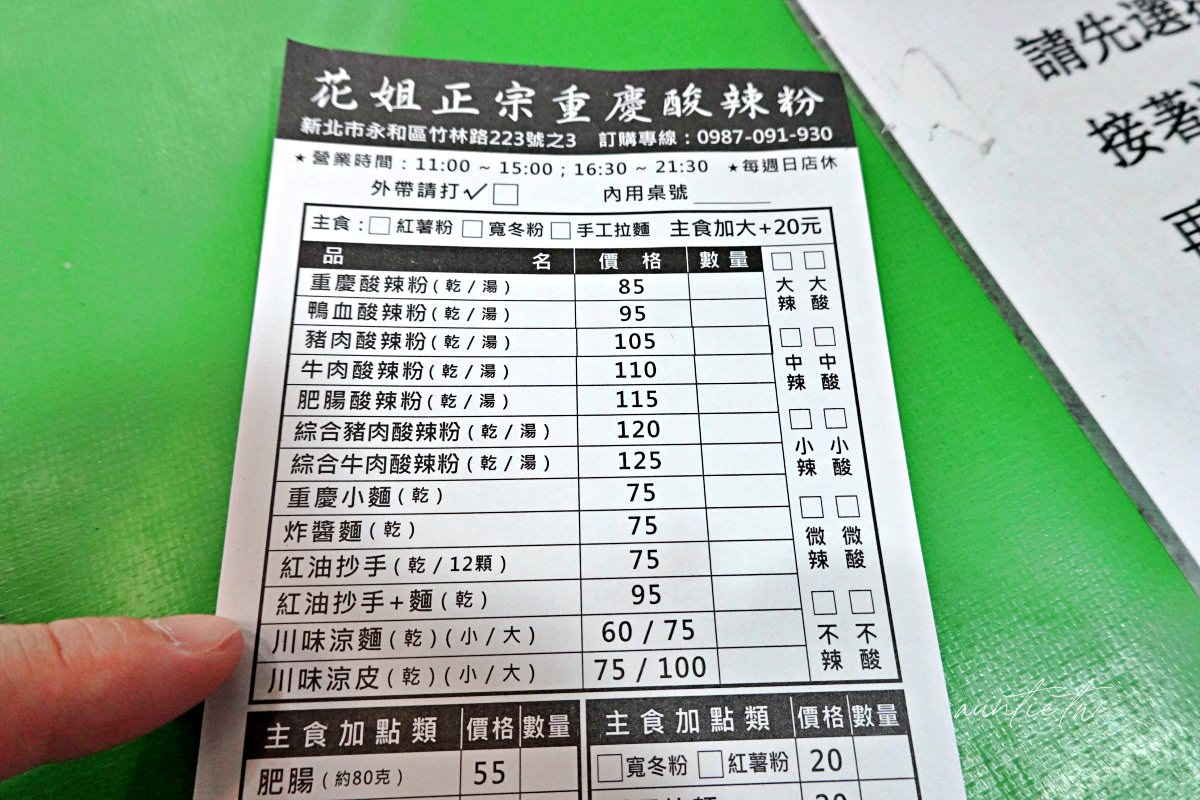 花姐正宗重慶酸辣粉
新北市永和區竹林路223號之3 訂購專線：0987-091-930
★營業時間：11:00 ~ 15:00；16:30 ~ 21:30 ★每週日店休
外帶請打✓□ 內用桌號______
主食：□紅薯粉 □寬冬粉 □手工拉麵 主食加大+20元
品名 價格 數量
重慶酸辣粉(乾/湯) 85
鴨血酸辣粉(乾/湯) 95
豬肉酸辣粉(乾/湯) 105
牛肉酸辣粉(乾/湯) 110
肥腸酸辣粉(乾/湯) 115
綜合豬肉酸辣粉(乾/湯) 120
綜合牛肉酸辣粉(乾/湯) 125
重慶小麵(乾) 75
炸醬麵(乾) 75
紅油抄手(乾/12顆) 75
紅油抄手+麵(乾) 95
川味涼麵(乾)(小/大) 60 / 75
川味涼皮(乾)(小/大) 75 / 100
□大辣 □大酸
□中辣 □中酸
□小辣 □小酸
□微辣 □微酸
□不辣 □不酸
主食加點類 價格 數量
肥腸(約80克) 55
主食加點類 價格 數量
□寬冬粉 □紅薯粉 20
請先選
接著